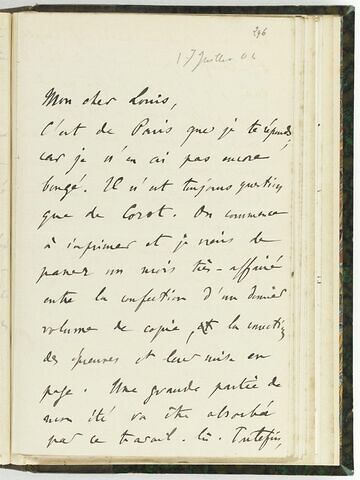 296
17 Juillet 04
Mon cher Louis,
C'est de Paris que je te réponds,
car je n'en ai pas encore
bougé. Il n'est toujours question
que de Corot. On commence
à imprimer et je viens de
passer un mois très-affairé
entre la confection d'un dernier
volume de copie, et la correction
des épreuves et leur mise en
page. Une grande partie de
mon été va être absorbée
par ce travail-là.